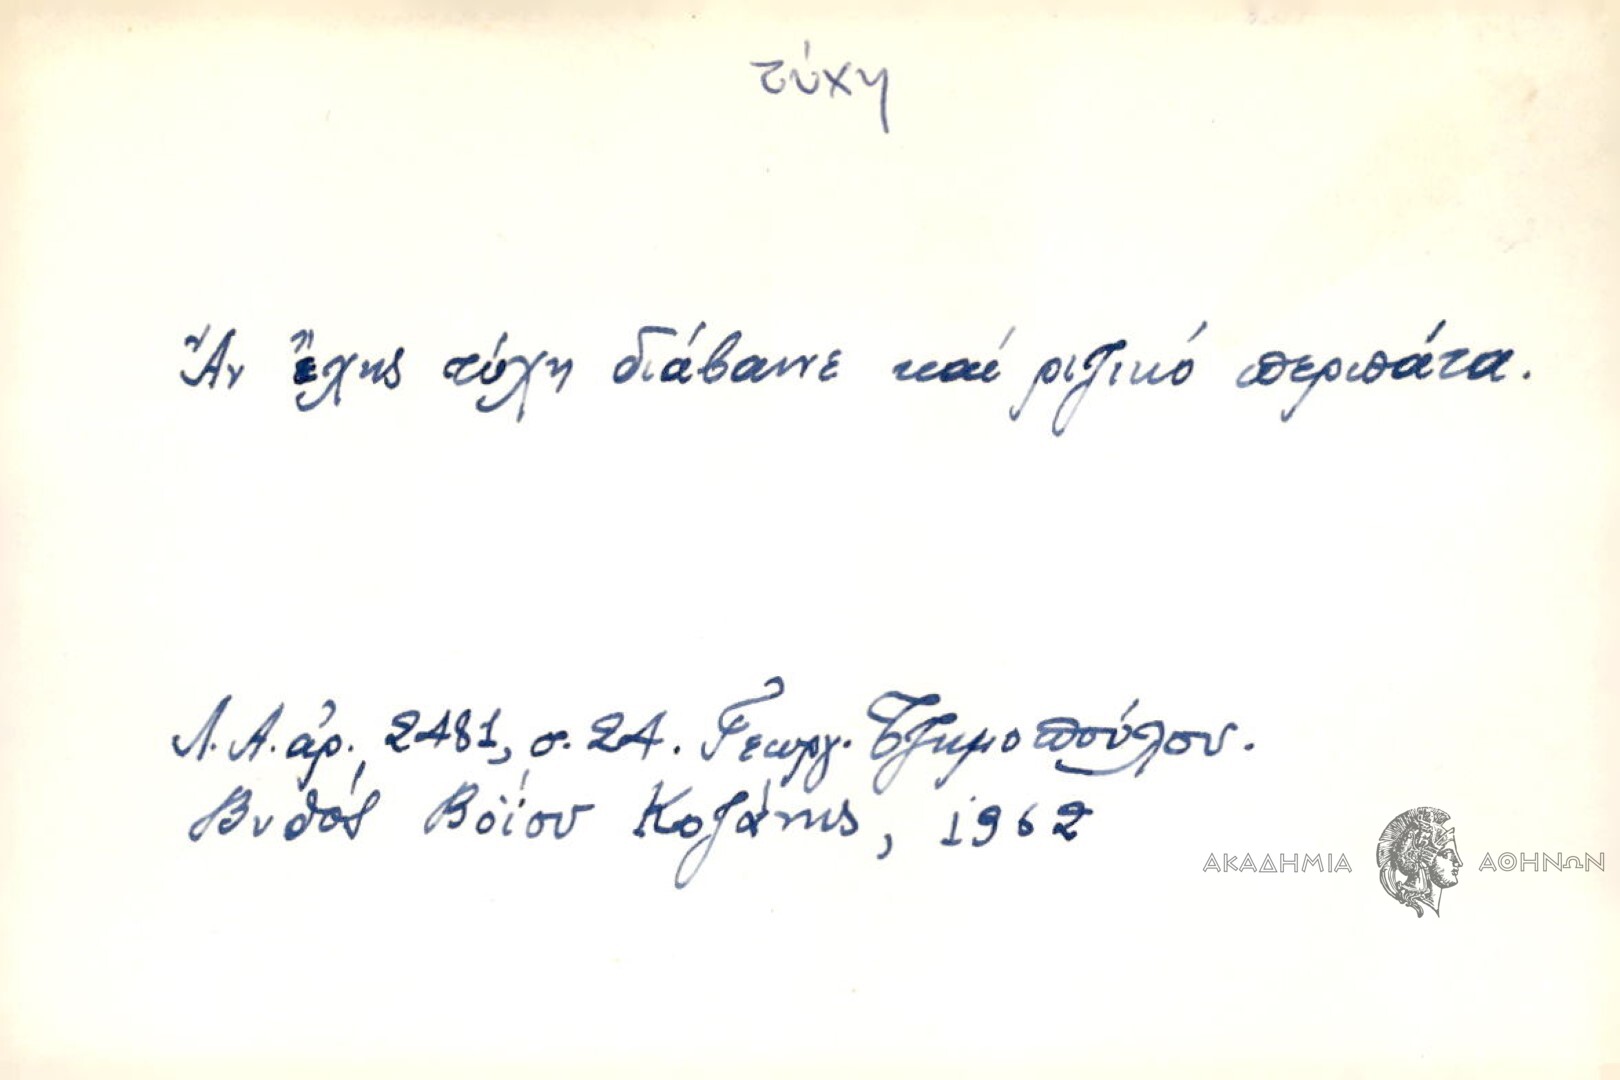 τύχη
Ἄν ἔχης τύχη διάβαινε καί ριζικό περιπάτα.
Λ.Α. ἀρ. 2481, σ. 24. Γεωργ. Τζημοπούλου.
Βυθός Βοΐου Κοζάνης, 1962
ΑΚΑΔΗΜΙΑ ΑΘΗΝΩΝ